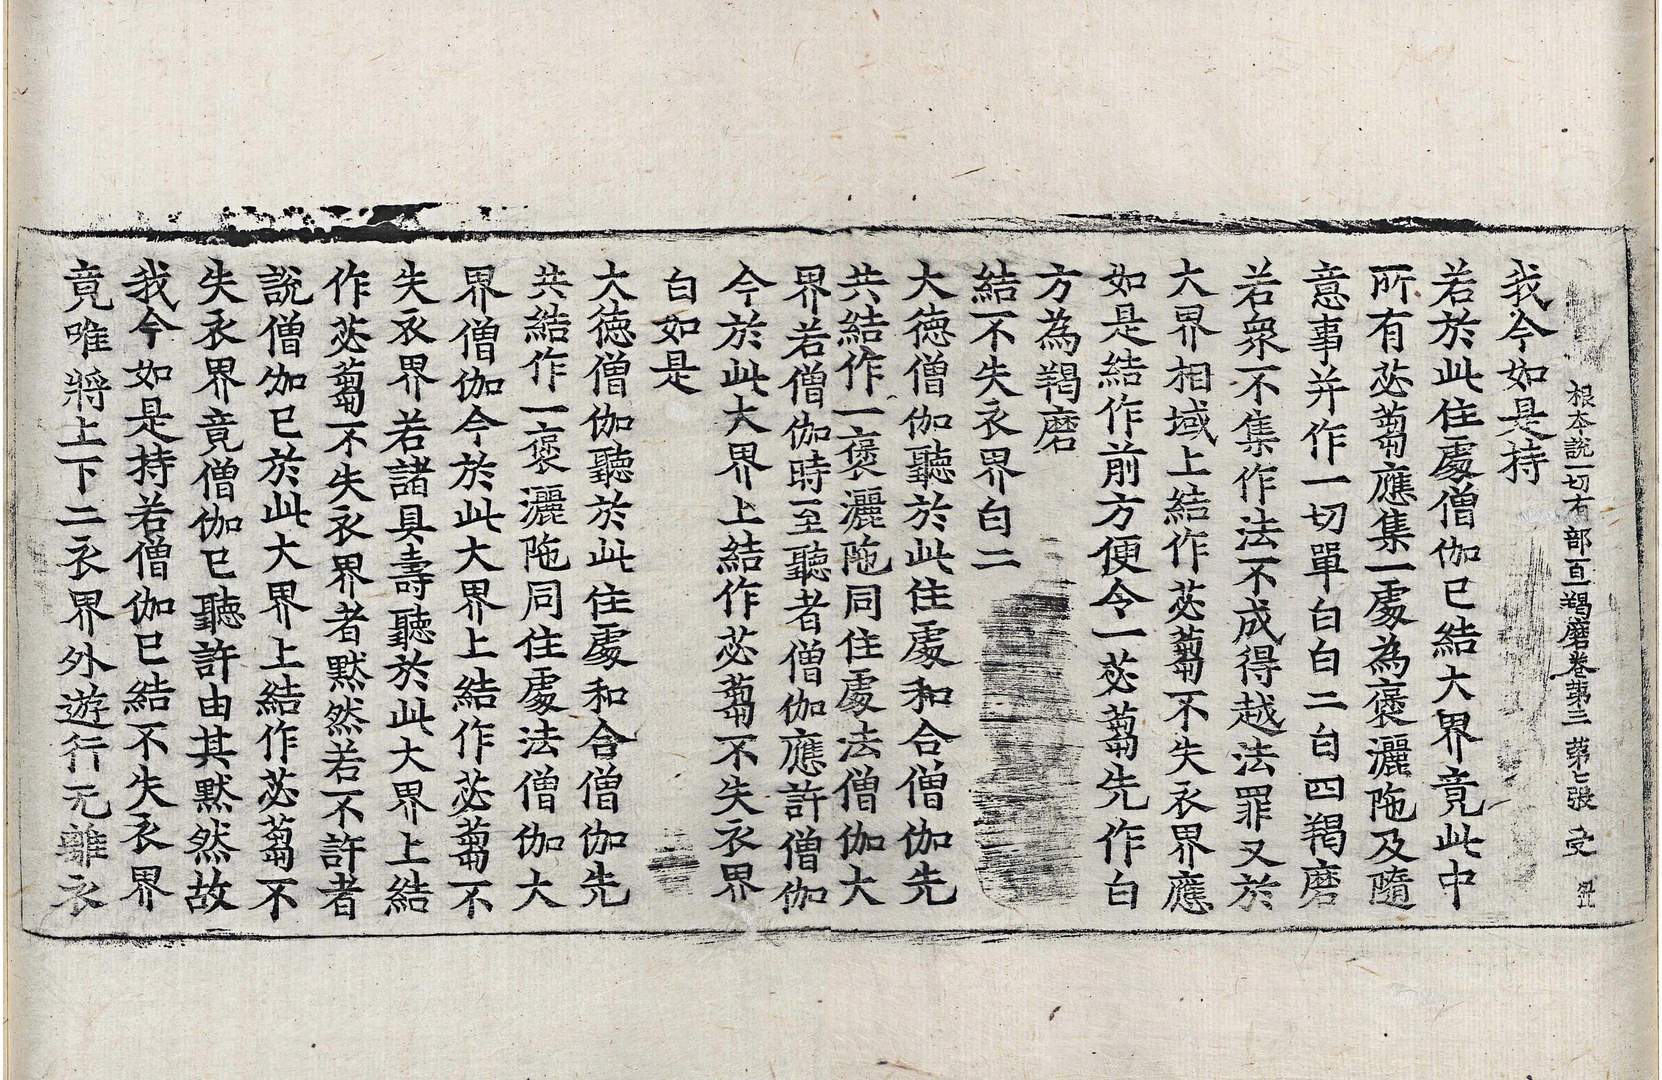 根本說一切有部百一羯磨卷第三 第七張 受
我今如是持
若於此住處僧伽已結大界竟此中
所有苾蒭應集一處為褒灑陁及隨
意事并作一切單白白二白四羯磨
若衆不集作法不成得越法罪又於
大界相域上結作苾蒭不失衣界應
如是結作前方便令一苾蒭先作白
方為羯磨
結不失衣界白二
大德僧伽聽於此住處和合僧伽先
共結作一褒灑陁同住處法僧伽大
界若僧伽時至聽者僧伽應許僧伽
今於此大界上結作苾蒭不失衣界
白如是
大德僧伽聽於此住處和合僧伽先
共結作一褒灑陁同住處法僧伽大
界僧伽今於此大界上結作苾蒭不
失衣界若諸具壽聽於此大界上結
作苾蒭不失衣界者默然若不許者
說僧伽已於此大界上結作苾蒭不
失衣界竟僧伽已聽許由其默然故
我今如是持若僧伽已結不失衣界
竟唯將上下二衣界外遊行无離衣